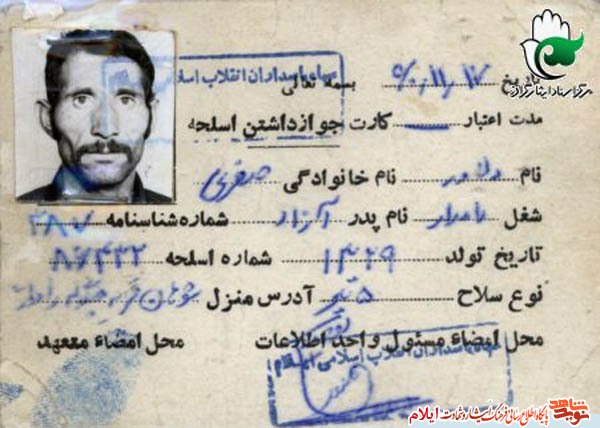 سپاه پاسداران انقلاب اسلامی
مرکز اسناد ایثارگران
بسمه تعالی
تاریخ ۶۰/۱۱/۱۷
مدت اعتبار کارت جواز داشتن اسلحه
نام دلاور نام خانوادگی صفری
شغل دامدار نام پدر آزاد شماره شناسنامه ۳۸۷
تاریخ تولد ۱۳۲۹ شماره اسلحه ۸۶۴۳۲
نوع سلاح ۵ تیر آدرس منزل
محل امضاء مسئول واحد اطلاعات محل امضاء متعهد
سپاه پاسداران انقلاب اسلامی
نوید شاهد پایگاه اطلاع رسانی فرهنگ ایثار و شهادت ایلام